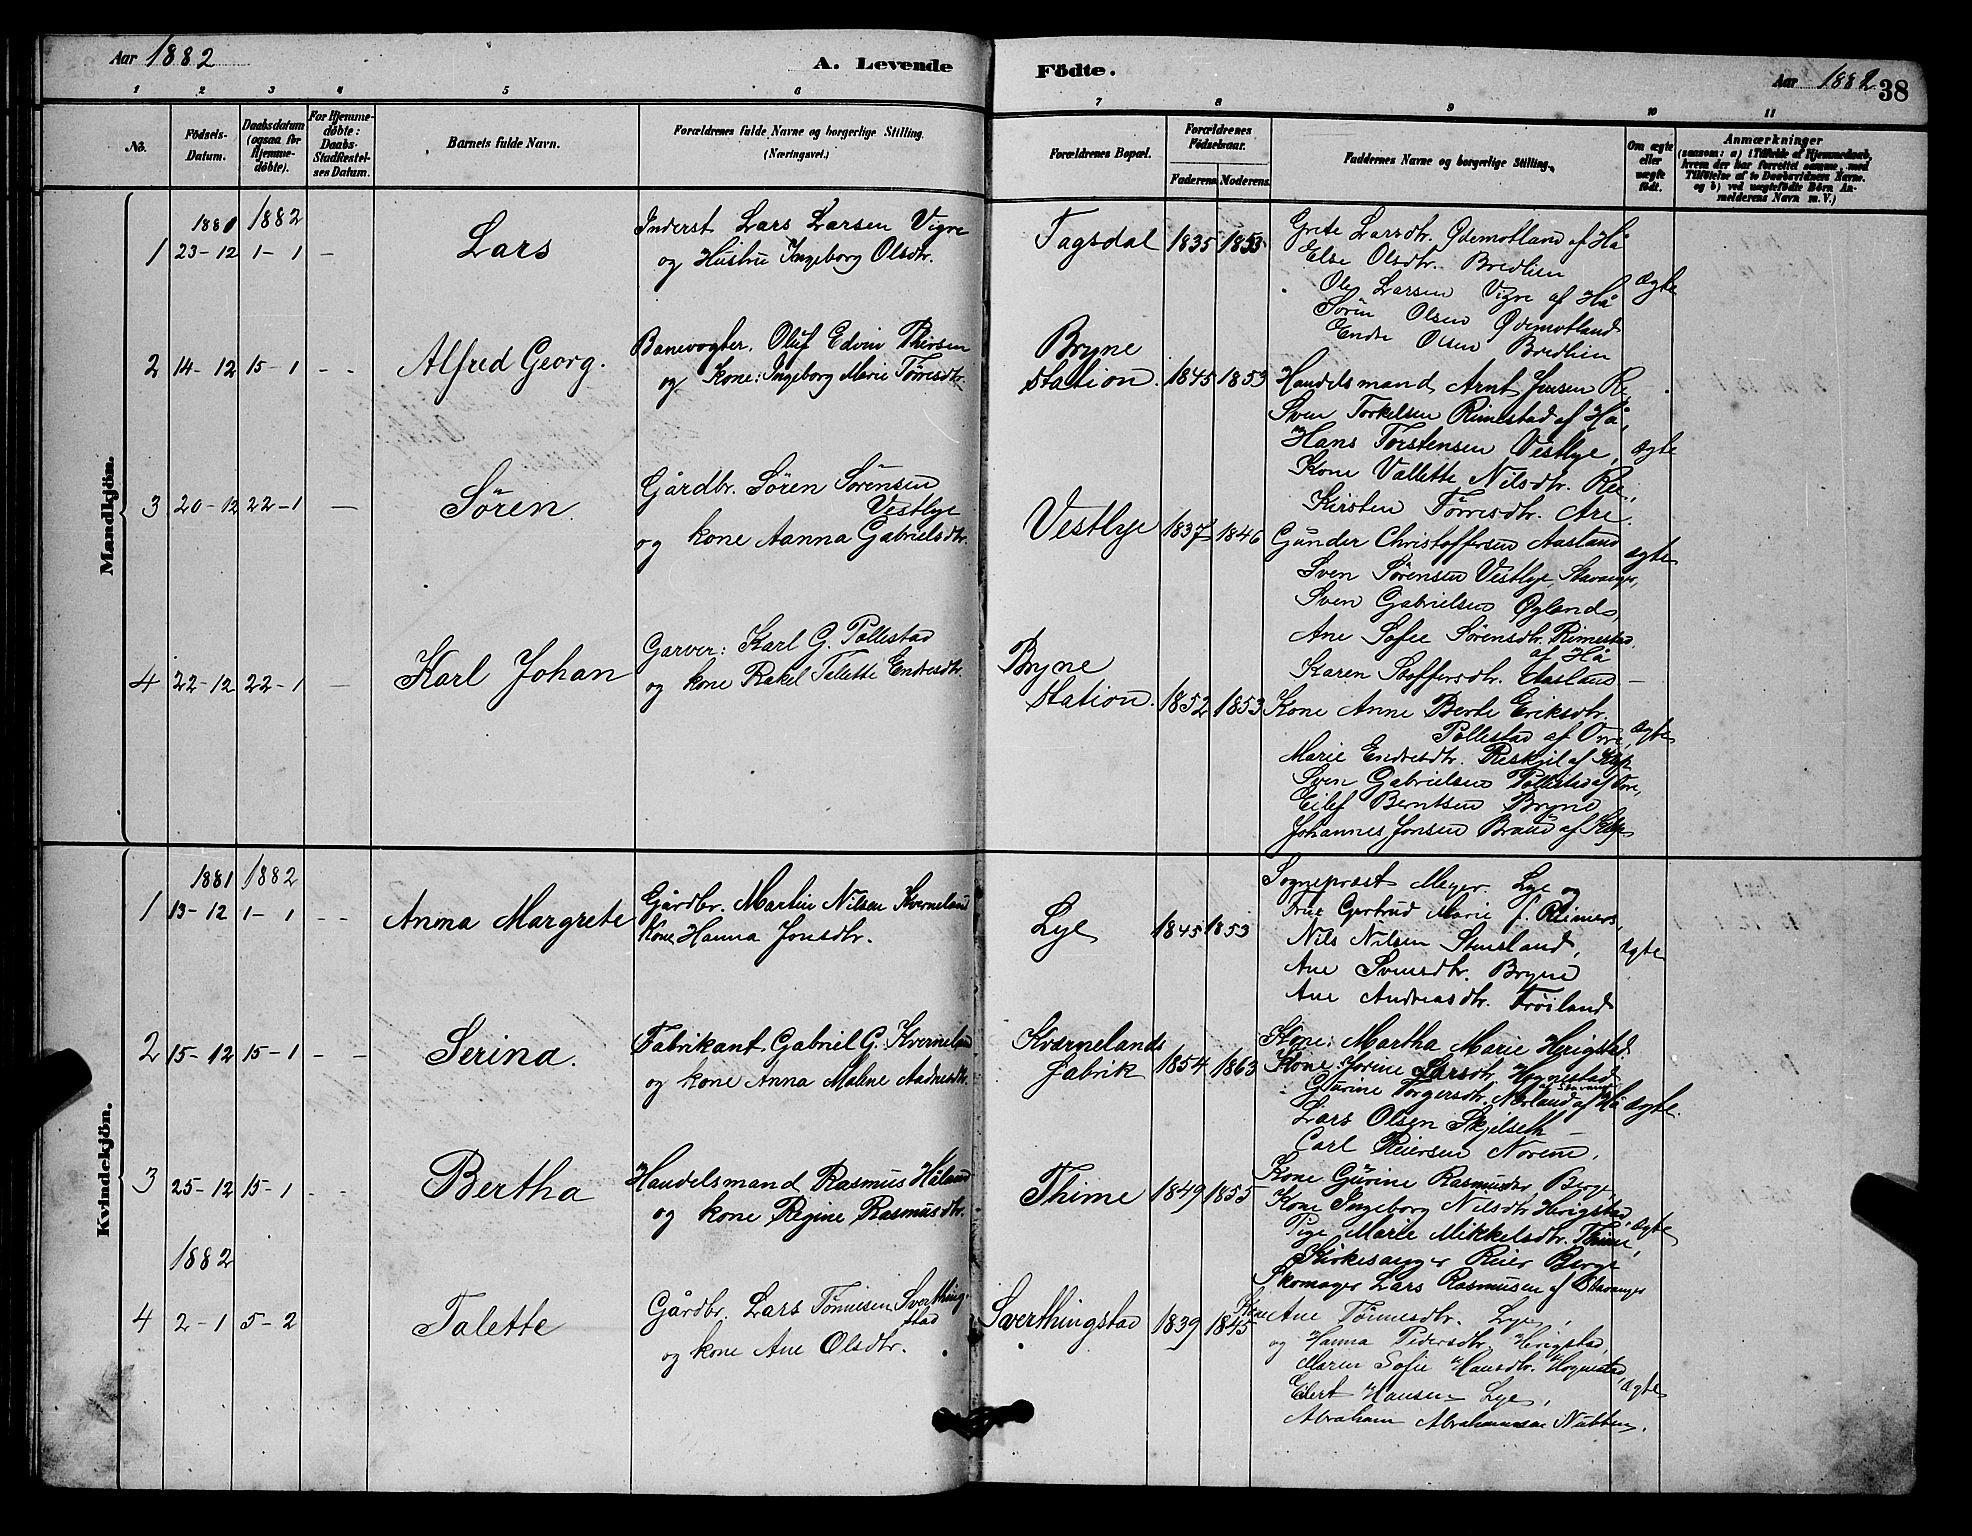 Aar 1882
A. Levende Födte.
Aar 1882
38
1 2 3 4 5 6 7 8 9 10 11
No.
Födsels-Datum.
Daabsdatum (ogsaa for Hjemmedøbte).
For Hjemmedøbte: Daabs-Stadfæstelses Datum.
Barnets fulde Navn.
Forældrenes fulde Navne og borgerlige Stilling. (Næringsvei.)
Forældrenes Bopæl.
Forældrenes Fødselsaar.
Faderens. Moderens.
Faddernes Navne og borgerlige Stilling.
Om ægte eller uægte født.
Anmærkninger
(saasom: a) i Tilfælde af Hjemmedaab, hvem der har forrettet samme, med Tilføielse af to Daabsvidners Navne. og b) ved uægtefødte Børn Anmelderens Navn m. V.)
Mandkjön.
1881 1882
1 23-12 1-1 —
Lars
Inderst Lars Larsen Vigre
og Hustru Ingeborg Olsdtr.
Tagsdal 1835 1853
Grete Larsdtr. Ødemotland af Hå
Else Olsdtr. Bredlien
Ole Larsen Vigre af Hå
Sören Olsen Ødemotland
Endre Olsen Bredlien
ægte
2 14-12 15-1 - -
Alfred Georg.
Banevogter. Oluf Edvin
og Kone: Ingeborg Marie Törresdtr.
Bryne
station. 1845 1853
Handelsmand Arnt Jensen
Sven Torkelsen Rimestad af Hå,
Hans Torstensen Vestlye,
Kone Vallette Nilsdtr. Re,
Kirsten Törresdtr. Are.
ægte
3 20-12 22-1 —
Sören
Gårdbr. Sören Sörensen
Vestlye
og kone Aanna Gabrielsdtr.
Vestlye 1837 1846
Gunder Christoffersen Aasland
Sven Sörensen Vestlye, Stavanger,
Sven Gabrielsen Øgland,
Ane Sofie Sörensdtr. Rimestad
af Hå
Karen Stoffersdtr. Aasland —
ægte
4 22-12 22-1 —
Karl Johan
Garver: Karl G. Pollestad
og kone Rakel Talette Endresdtr.
Bryne
station. 1852 1853
Kone Anne Berte Eriksdtr.
Pollestad af Orre,
Marie Endresdtr. af Klep
Sven Gabrielsen Pollestad af Orre,
Eilef Berntsen Bryne
Johannes Jonsen Braud af Klep
ægte
Kvindekjön.
1881 1882
1 13-12 1-1 - -
Anna Margrete
Gårdbr. Martin Nilsen Kverneland
Kone Hanna Jonsdtr.
Lye 1845 1853
Sognepræst Meyer. Lye og
Frue Gertrud Marie f. Reimers,
Nils Nilsen
Ane Svensdtr. Bryne
Ane Andreasdtr. Fröiland
ægte
2 15-12 15-1 - -
Serina.
Fabrikant Gabriel G. Kverneland
og kone Anna Malene Aadnesdtr.
Kværnelands
fabrik 1854 1863
Kone: Martha Marie Herigstad
Kone: Jorine Larsdtr. Hognestad
af Stavanger
Gurine Torgersdtr. Nærland af Hå
Lars Olsen Skjelseth
Carl Reiersen Norem,
ægte.
3 25-12 15-1 - -
Bertha
Handelsmand Rasmus Håland
og kone Regine Rasmusdtr.
Thime 1849 1855
Kone Gurine Rasmusdtr Berge,
Kone Ingeborg Nilsdtr Herigstad,
Pige Marie Mikkelsdtr. Thime,
Kirkesanger Reier Berge
Skomager Lars Rasmusen af Stavanger
ægte
1882
4 2-1 5-2
Talette
Gårdbr. Lars Tönnesen Sverthingstad
og kone Ane Olsdtr.
Sverthingstad 1839 1845
Kone Ane Tönnesdtr. Lye,
og Hanna Pedersdtr. Herigstad,
Maren Sofie Hansdtr. Hognestad,
Eilert Hansen Lye,
Abraham Abrahamsen
ægte